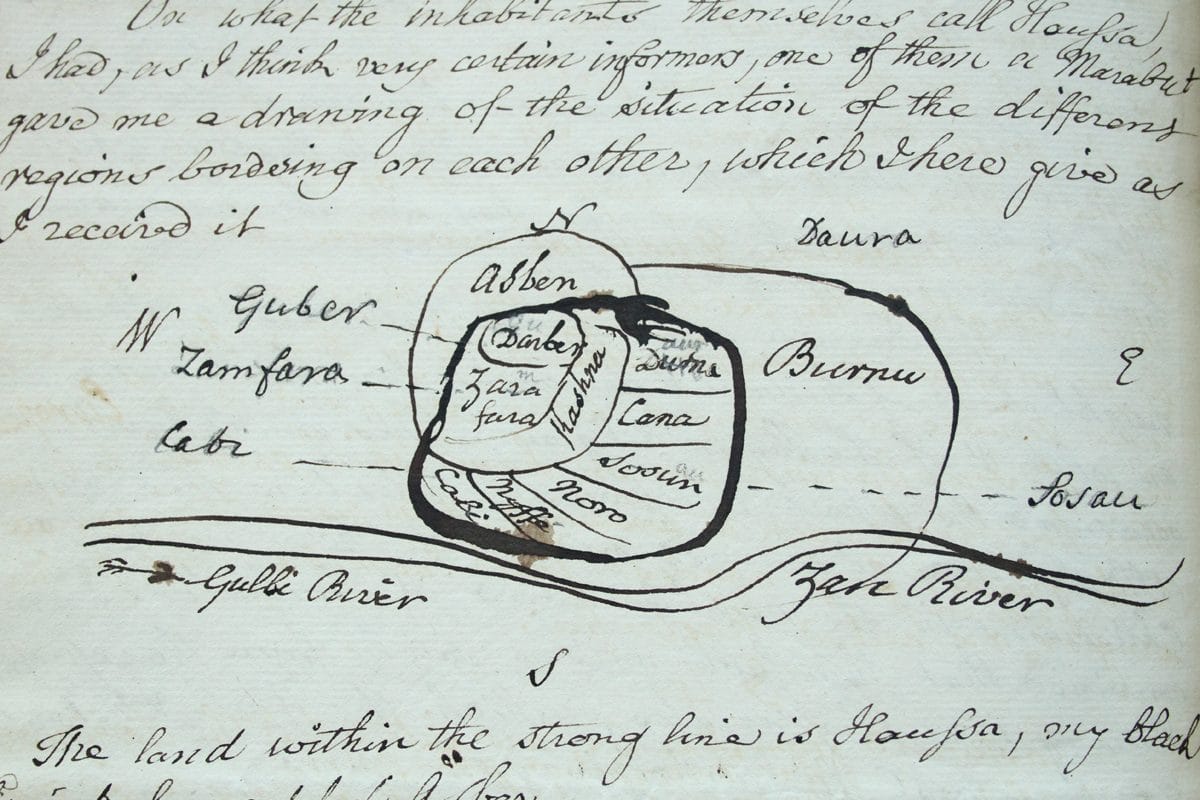 On what the inhabitants themselves call Haussa,
I had, as I think very certain informers, one of them a Marabut
gave me a drawing of the situation of the different
regions bordering on each other, which I here give as
I received it
N
Daura
Asben
Guber
W
Zamfara
Cabi
Zara
fara
Kashna
Cana
Burnu
E
Noro
Nyffe
Cabi
Sosau
Gulbi River
Zan River
S
The land within the strong line is Haussa, my black